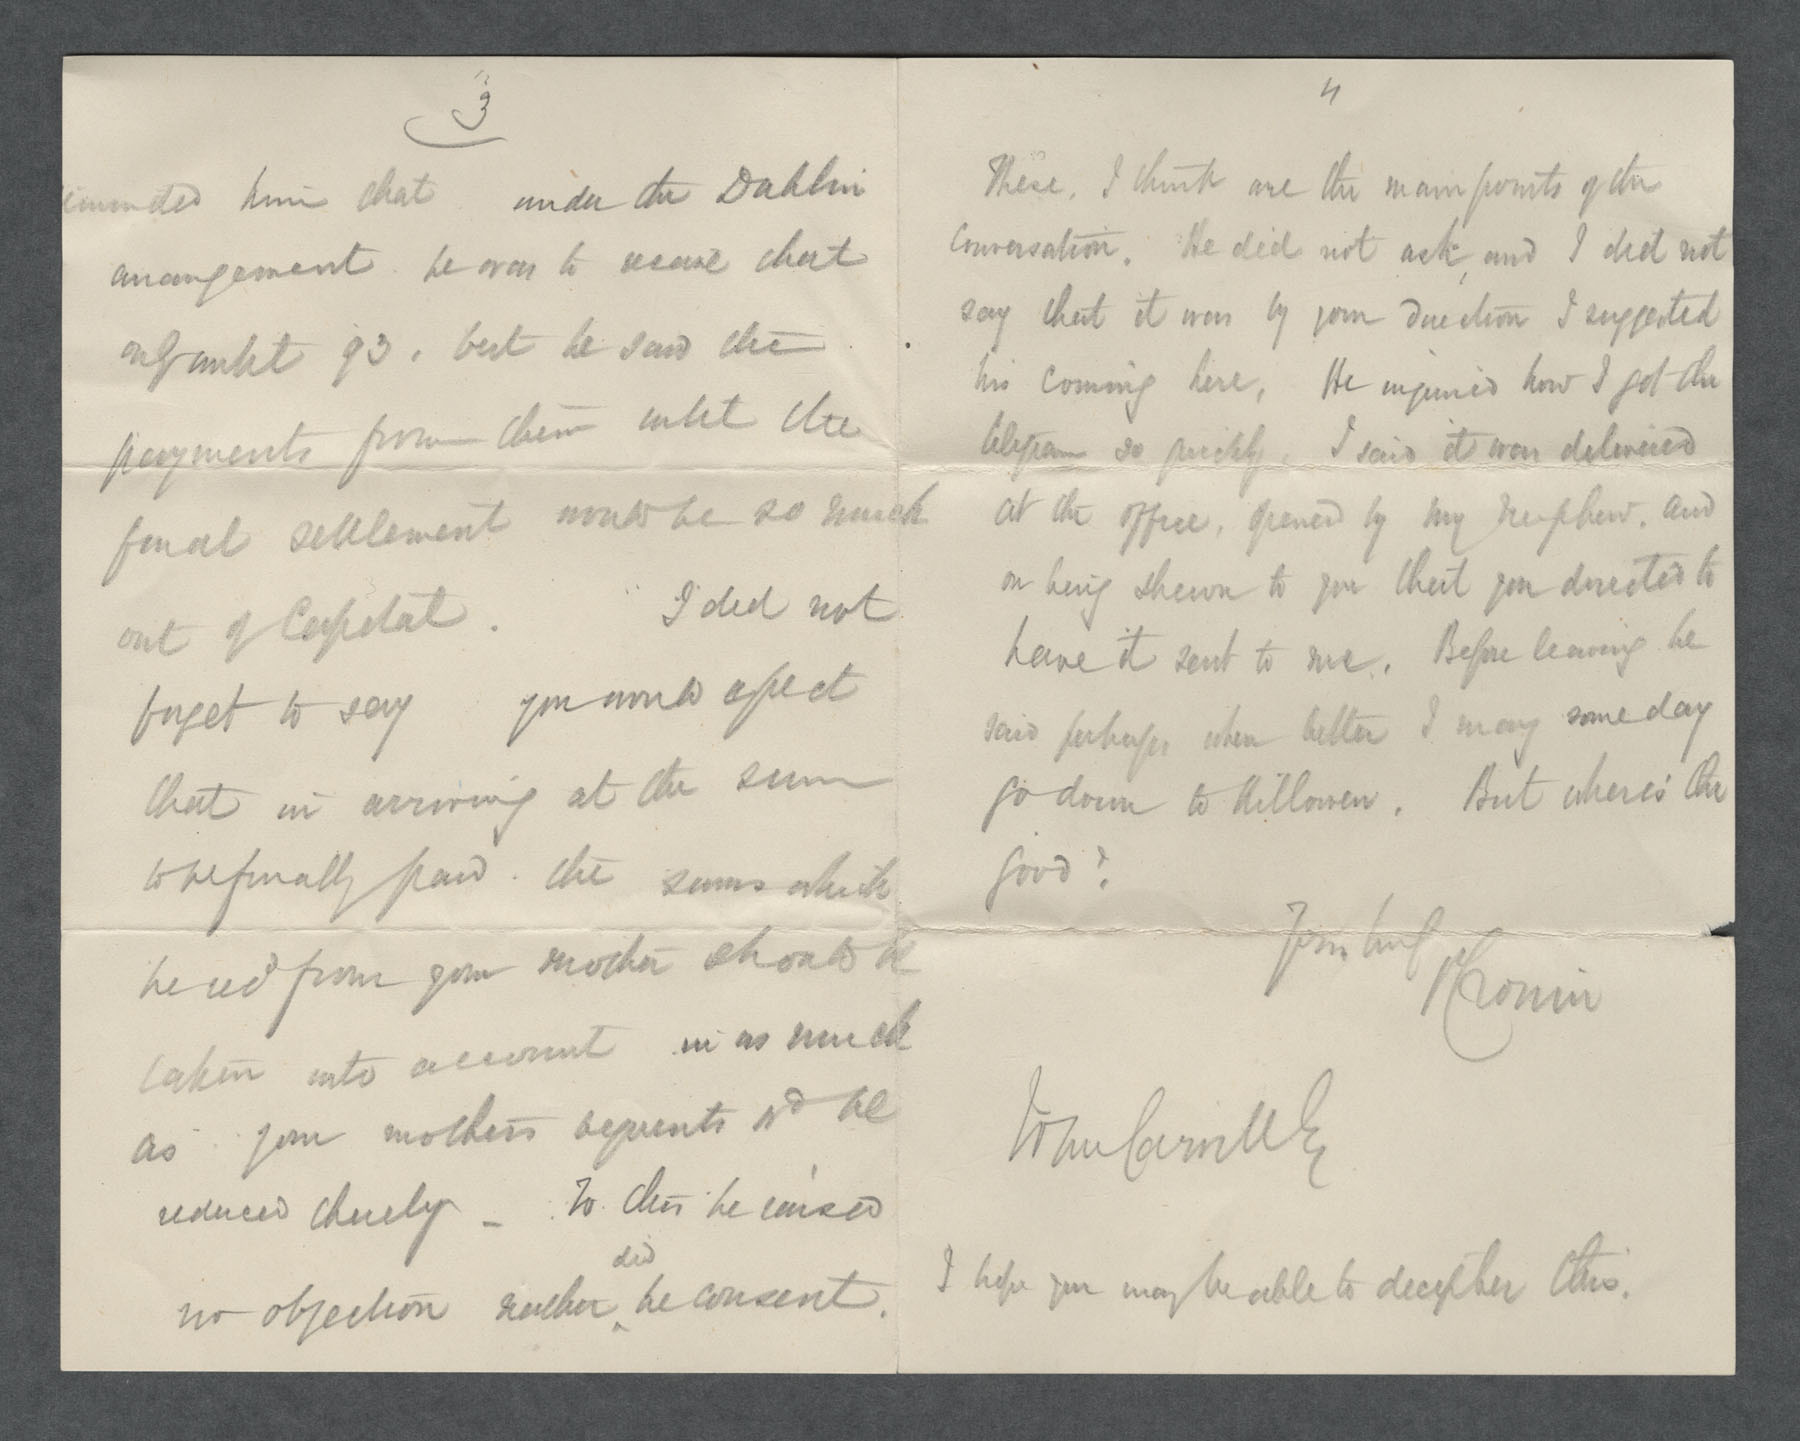 3
reminded him that under the Dublin
arrangement he was to receive that
only until 93. but he said the
payments from then until the
final settlement would be so much
out of Capital. I did not
forget to say you would expect
that in arriving at the sum
to be finally paid the sums which
he recd from your mother should be
taken into account in as much
as your mothers bequests wd be
reduced thereby - To this he raised
no objection neither did he consent.
4
These, I think are the main points of the
conversation. He did not ask, and I did not
say that it was by your direction I suggested
his coming here. He inquired how I got the
telegram so quickly. I said it was delivered
at the office, opened by my nephew, and
on being shewn to you that you directed to
have it sent to me. Before leaving he
said perhaps when better I may some day
go down to Killowen. But where's the
good?
Yours truly
Cronin
John Carvill Eq
I hope you may be able to decipher this.